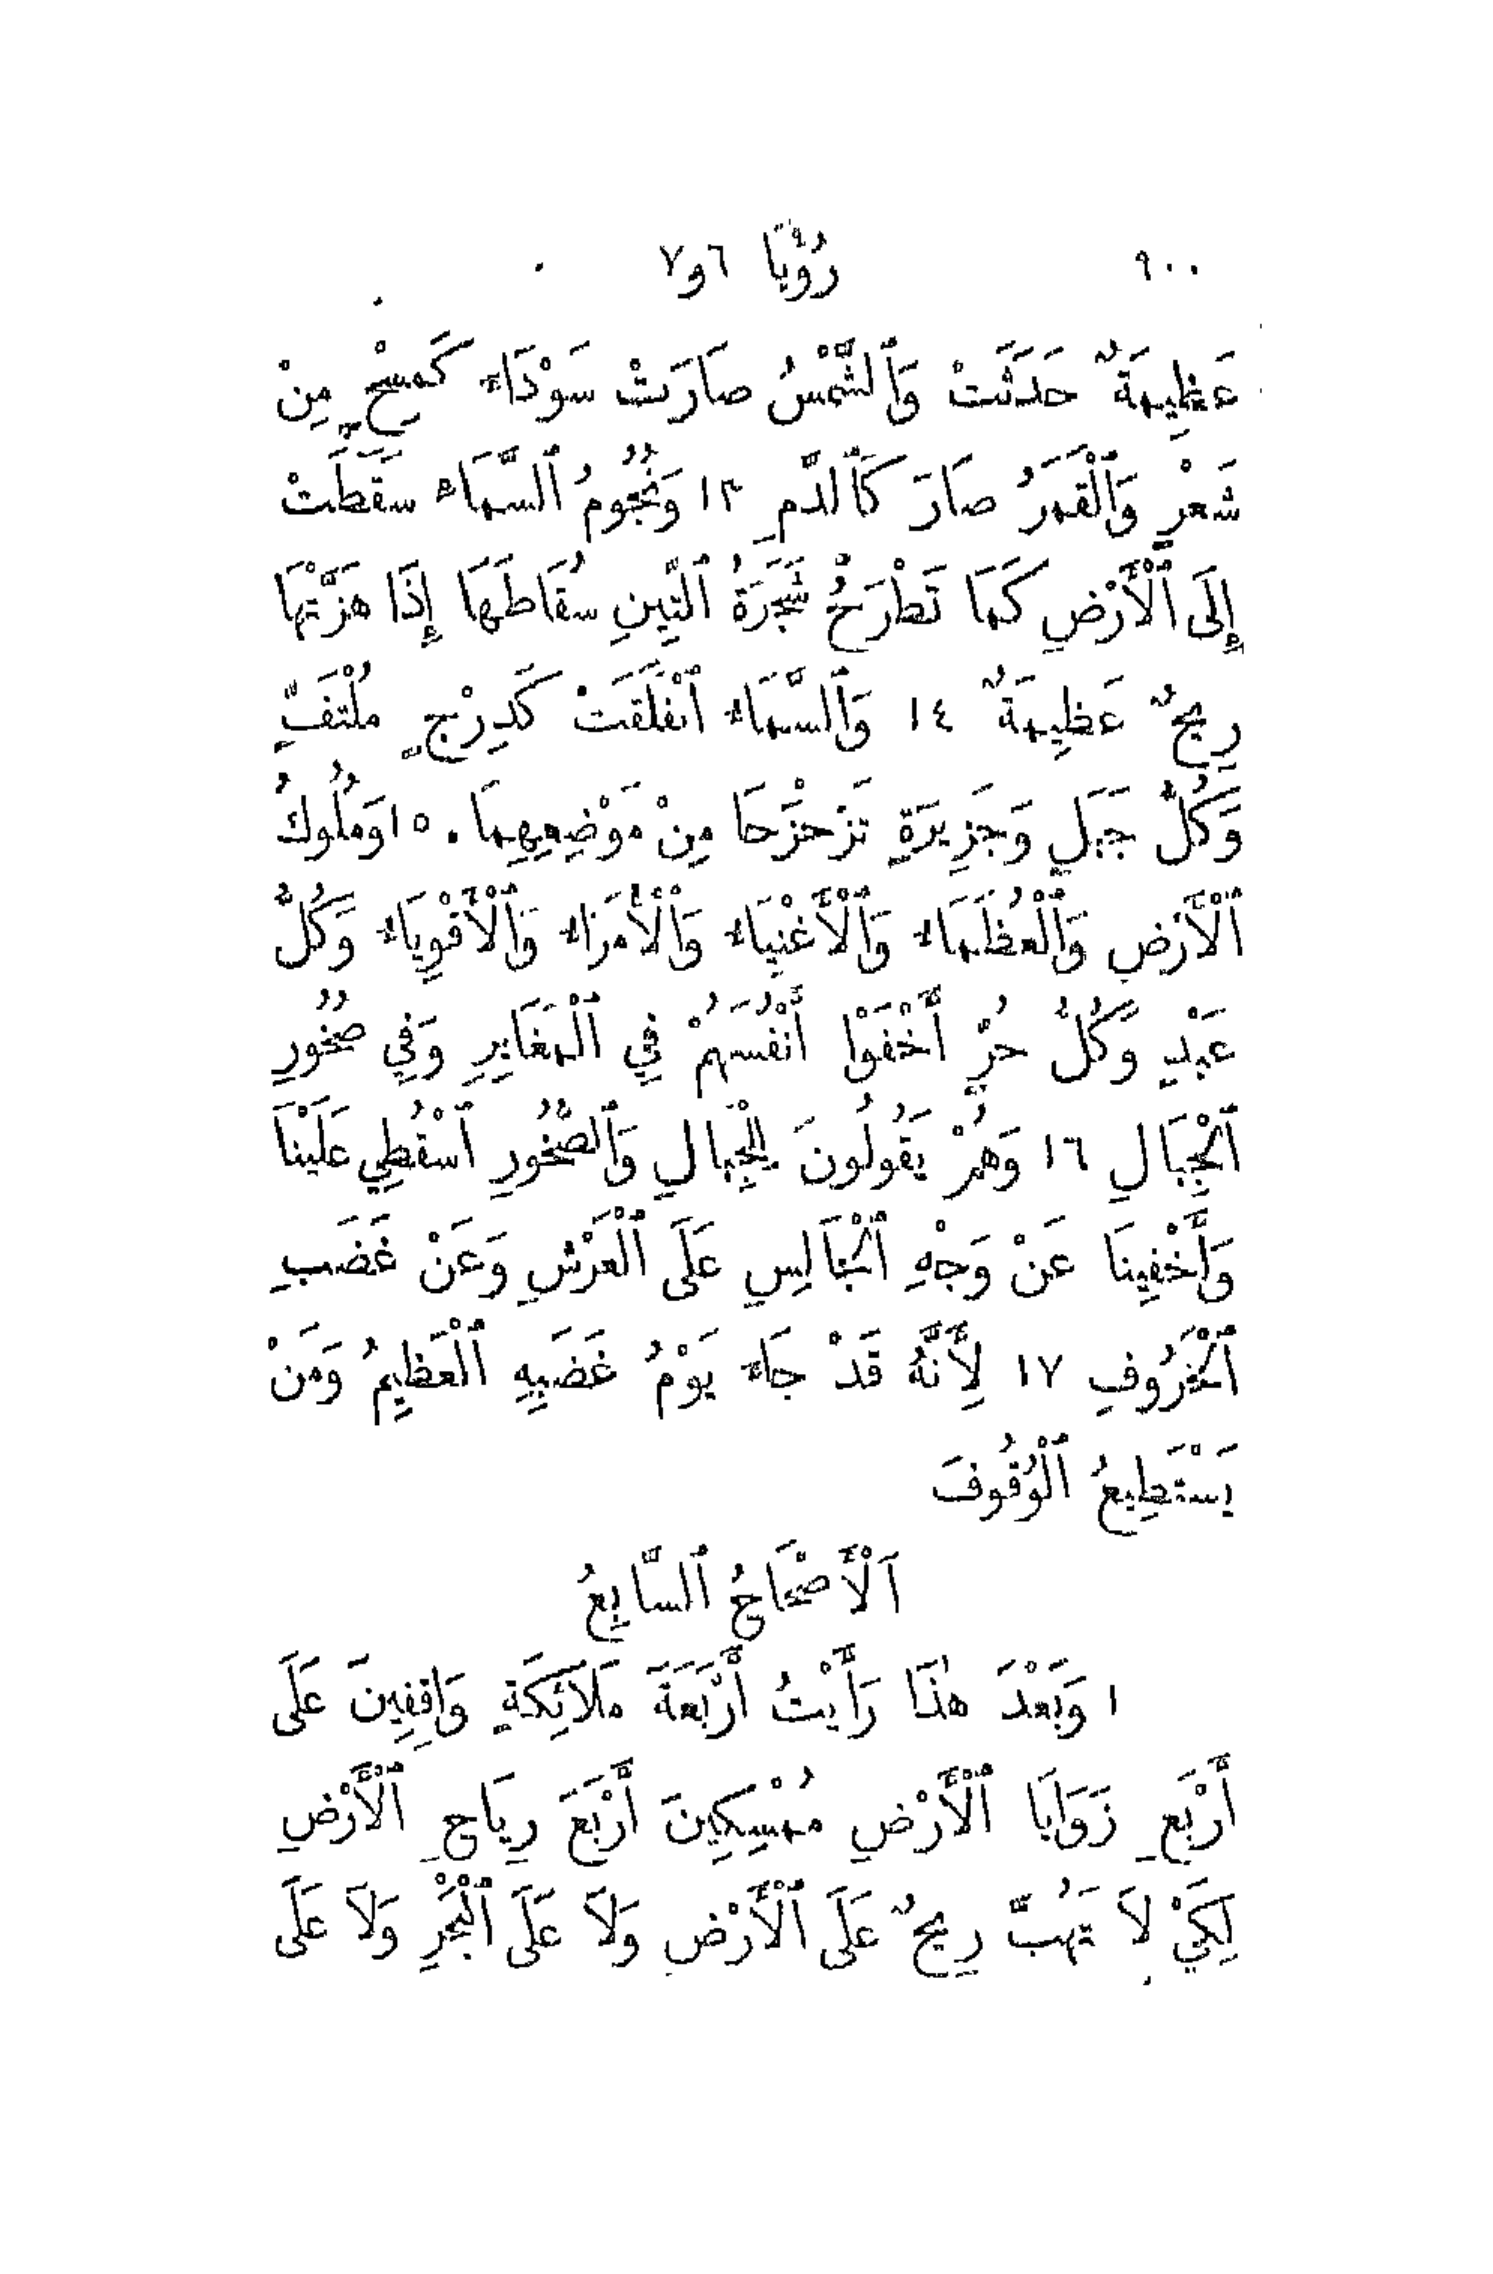 ٩٠٠ رُؤْيَا ٦و٧
عَظِيمَةٌ حَدَثَتْ وَٱلشَّمْسُ صَارَتْ سَوْدَاءَ كَمِسْحٍ مِنْ
شَعْرٍ وَٱلْقَمَرُ صَارَ كَٱلدَّمِ ١٣ وَنُجُومُ ٱلسَّمَاءِ سَقَطَتْ
إِلَى ٱلْأَرْضِ كَمَا تَطْرَحُ شَجَرَةُ ٱلتِّينِ سُقَاطَهَا إِذَا هَزَّتْهَا
رِيحٌ عَظِيمَةٌ ١٤ وَٱلسَّمَاءُ ٱنْفَلَقَتْ كَدَرْجٍ مُلْتَفٍّ
وَكُلُّ جَبَلٍ وَجَزِيرَةٍ تَزَحْزَحَا مِنْ مَوْضِعِهِمَا. ١٥وَمُلُوكُ
ٱلْأَرْضِ وَٱلْعُظَمَاءُ وَٱلْأَغْنِيَاءُ وَٱلْأُمَرَاءُ وَٱلْأَقْوِيَاءُ وَكُلُّ
عَبْدٍ وَكُلُّ حُرٍّ أَخْفَوْا أَنْفُسَهُمْ فِي ٱلْمَغَايِرِ وَفِي صُخُورِ
ٱلْجِبَالِ ١٦ وَهُمْ يَقُولُونَ لِلْجِبَالِ وَٱلصُّخُورِ ٱسْقُطِي عَلَيْنَا
وَأَخْفِينَا عَنْ وَجْهِ ٱلْجَالِسِ عَلَى ٱلْعَرْشِ وَعَنْ غَضَبِ
ٱلْخَرُوفِ ١٧ لِأَنَّهُ قَدْ جَاءَ يَوْمُ غَضَبِهِ ٱلْعَظِيمُ وَمَنْ
يَسْتَطِيعُ ٱلْوُقُوفَ
اَلْأَصْحَاحُ ٱلسَّابِعُ
١ وَبَعْدَ هٰذَا رَأَيْتُ أَرْبَعَةَ مَلَائِكَةٍ وَاقِفِينَ عَلَى
أَرْبَعِ زَوَايَا ٱلْأَرْضِ مُمْسِكِينَ أَرْبَعَ رِيَاحِ ٱلْأَرْضِ
لِكَيْ لَا تَهُبَّ رِيحٌ عَلَى ٱلْأَرْضِ وَلَا عَلَى ٱلْبَحْرِ وَلَا عَلَى